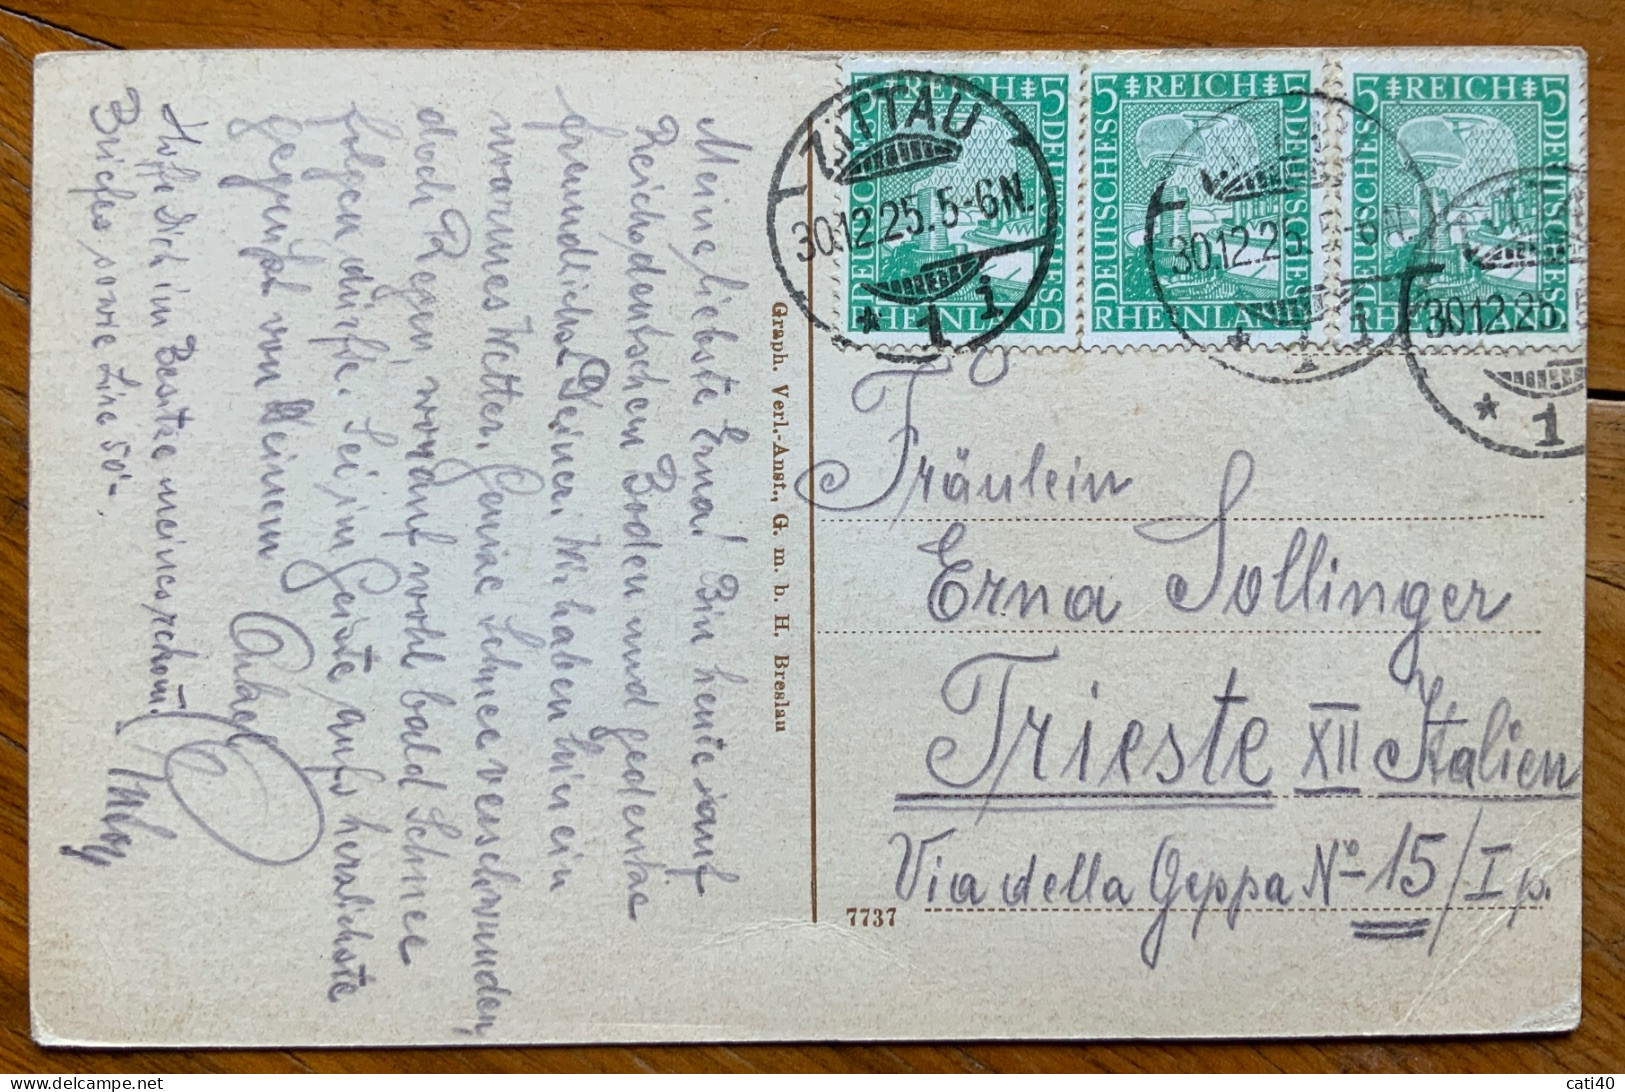 Meine liebste Erna! Bin heute auf
Reichsdeutschen Boden und gedenke
freundlichst Deiner. Wir haben hier ein
warmes Wetter. Schnee verschwunden,
doch Regen, worauf wohl bald Schnee
folgen dürfte. Sei im Geiste aufs herzlichste
gegrüßt von Deinem
Hoffe Dich im Besitze meines
Briefes sowie Lire 50-
Graph. Verl.-Anst., G. m. b. H. Breslau
7737
5 REICH 5
DEUTSCHES
RHEINLAND
5 REICH 5
DEUTSCHES
RHEINLAND
5 REICH 5
DEUTSCHES
RHEINLAND
ZITTAU
30.12.25. 5-6 N.
* 1
30.12.25.
* 1
30.12.25.
* 1
Fräulein
Erna Sollinger
Trieste XII Italien
Via della Geppa No 15/I p.
cati40